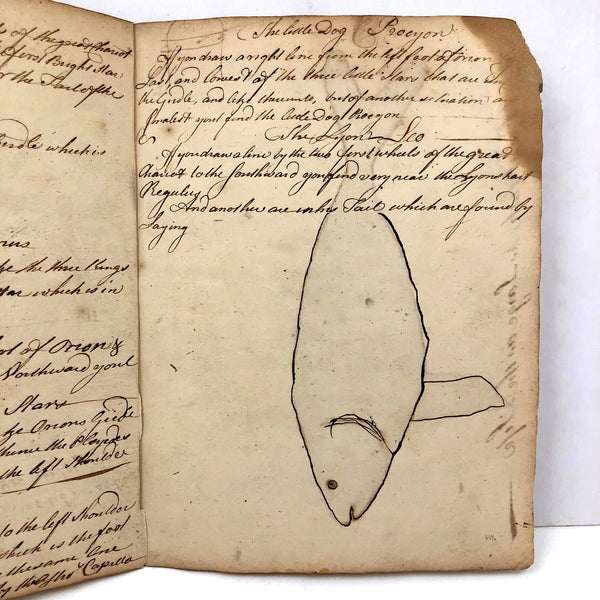 s of the great Chariot
first Bright Star
r the Tail of the
irdle which is
ius
e the three Kings
tar which is in
ot of Orion &
Northward youl
Stars
e Orions Girdle
thence the Pleyades
the left Shoulder
to the left Shoulder
which is the foot
the same one
Capella
The Little Dog Procyon
If you draw a right line from the left foot of orion
Last and lowest of the three little Stars that are
the Girdle, and like thereunto, but of another situation
youl find the little Dog Procyon
The Lyon Leo
If you draw a line by the two first wheels of the great
Chariot to the Southward you find very near the Lyons hart
Regulus
And another are in his Tail which are found by
Saying